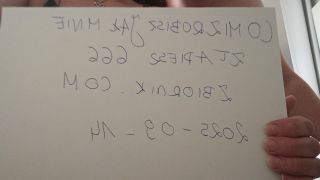 CO MI ZROBISZ JAK MNIE
ZŁAPIESZ 666
ZBIORNIK.COM
2025-09-14